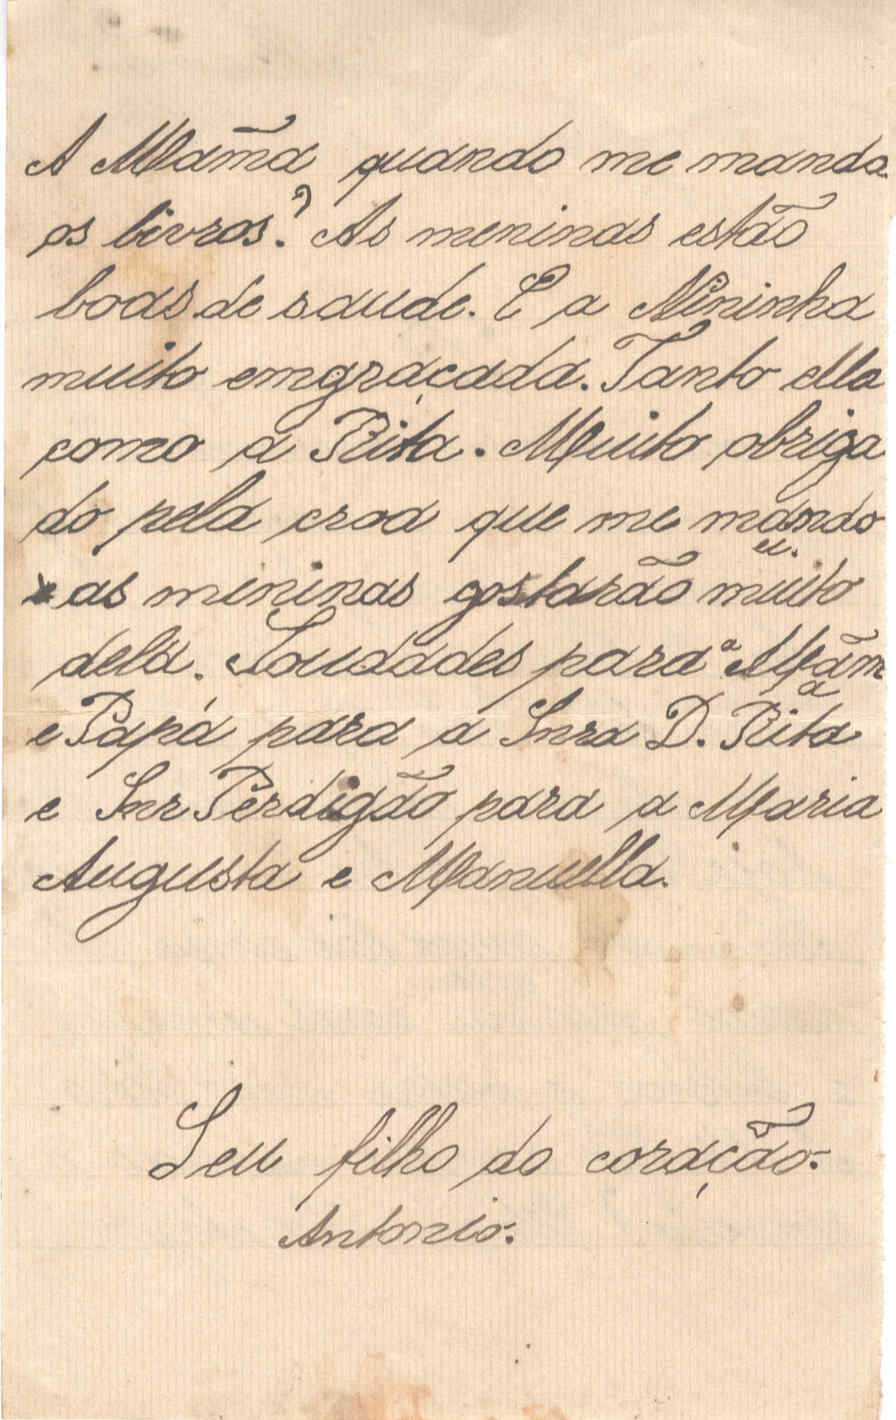 A Mamã quando me manda
os livros? As meninas estão
boas de saude. E a Nininha
muito emgraçada. Tanto ella
como a Rita. Muito obriga
do pela croa que me mando
eu.
as meninas gostarão muito
dela. Saudades para a Mãm
a
e Papá para a Snra D. Rita
e Snr Perdigão para a Maria
Augusta e Manuella.
Seu filho do coração.
Antonio.